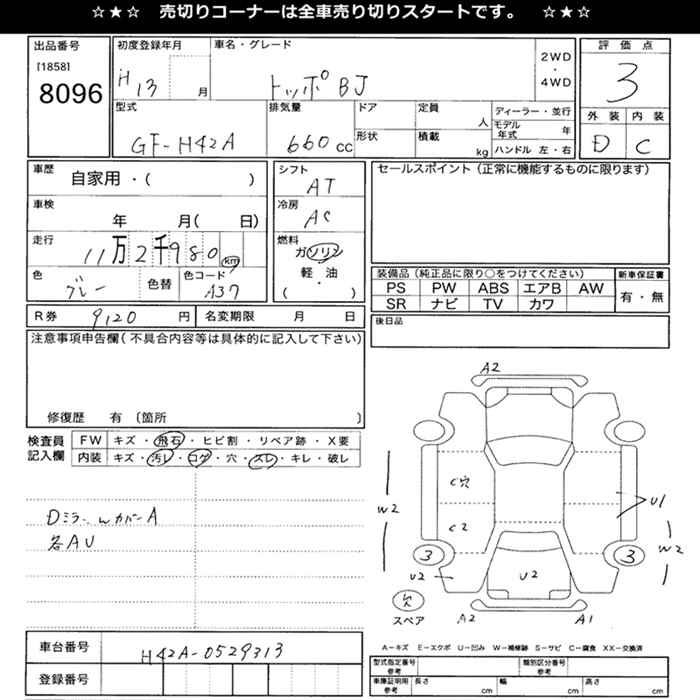 ☆★☆ 売切りコーナーは全車売り切りスタートです。 ☆★☆
出品番号 初度登録年月 車名・グレード 2WD・4WD 評価点
[1858]
8096 H13 月 トッポBJ 3
型式 排気量 ドア 定員 人 ディーラー・並行 外装 内装
形状 積載 kg モデル年式 年
GF-H42A 660cc ハンドル 左・右 D C
車歴 自家用・( ) シフト AT セールスポイント (正常に機能するものに限ります)
車検 年 月( 日) 冷房 AC
走行 11万2千980km 燃料 ガソリン
軽・油
( )
色 グレー 色替 色コード A37
装備品(純正品に限り○をつけてください) 新車保証書
PS PW ABS エアB AW 有・無
SR ナビ TV カワ
R券 9120円 名変期限 月 日 後日品
注意事項申告欄(不具合内容等は具体的に記入して下さい)
修復歴 有 〔箇所 〕
検査員 FW キズ・飛石・ヒビ割・リペア跡・X要
記入欄 内装 キズ・汚レ・コゲ・穴・スレ・キレ・破レ
Dミラー wカバーA
各AU
A2
C穴
W2
C2
U1
W2
3
3
U2
U2
スペア
A2
A1
A-キズ E-エクボ U-凹み W-補修跡 S-サビ C-腐食 XX-交換済
車台番号 H42A-0529313
登録番号
型式指定番号 参考 類別区分番号 参考
車庫証明用 参考 長さ cm 幅 cm 高さ cm